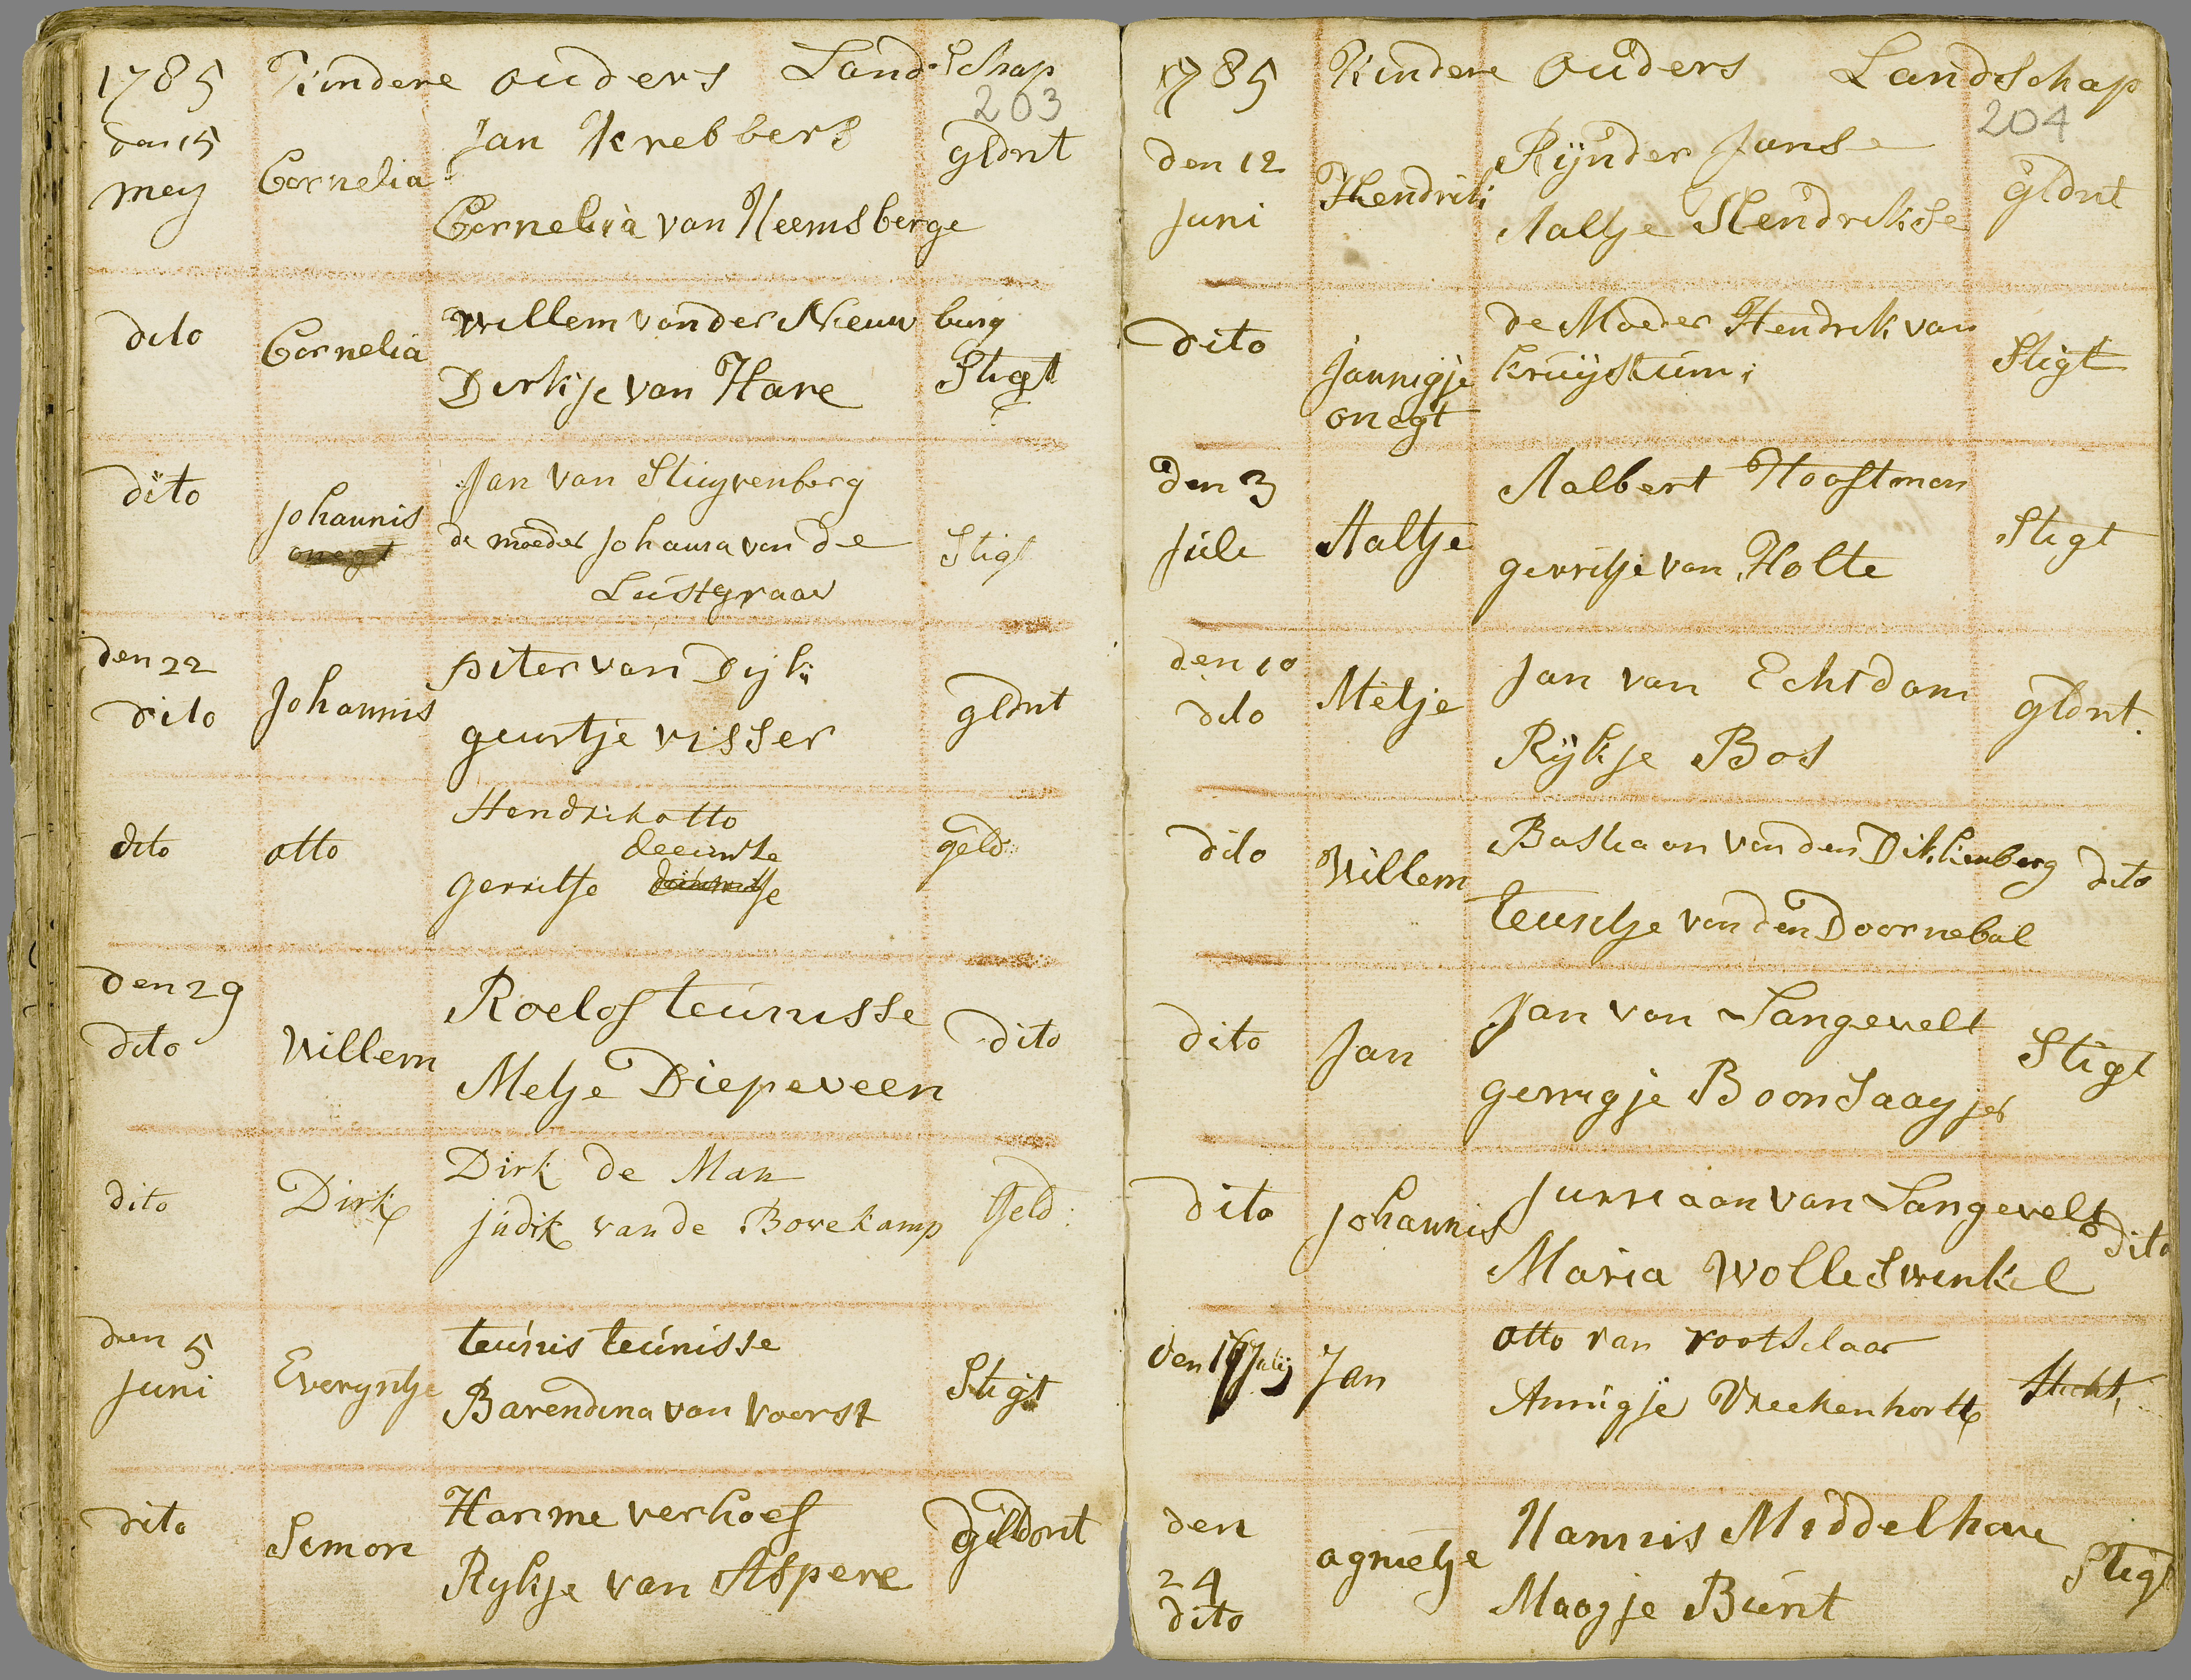 1785 Kindere ouders Landschap
203
den 15 mey Cornelia Jan Krebbers gldnt
Cornelia van Heemsberge
dito Cornelia willem van der Nieuwburg
Dirkje van Hare Stigt
dito Johannis Jan van Stuyvenberg
onegt de moeder Johanna van de Stigt
Lustgraaf
den 22 dito Johannis piter van Dyk gldnt
geurtje visser
dito otto Hendrik otto geld:
deeunise
gerritje
den 29 dito Willem Roelof teunisse dito
Metje Diepeveen
dito Dirk Dirk de Man Geld:
judik van de Bovekamp
den 5 Juni Everyntje teunis teunisse Stigt
Barendina van voorst
dito Semon Harme verhoef gildont
Rykje van Aspere
1785 Kindere ouders Landschap
204
den 12 Juni Hendrik Rijnder Janse gldnt
Aaltje Hendrikse
dito Jannigje de Moeder Hendrik van Stigt
onegt kruijstum
den 3 Juli Aaltje Aalbert Hooftman Stigt
gerritje van Holte
den 10 dito Metje Jan van Echtdom gldnt.
Rijkje Bos
dito Willem Bastiaan van den Dikkenberg dito
teuntje van den Doornebal
dito Jan Jan van Langevelt Stigt
gerrigje Boonsaayer
dito Johannis Jurriaan van Langevelt dito
Maria Wolleswinkel
den 17 Julij Jan otto van rootselaar Sticht,
Annigje Vreekenhorst
den 24 dito agnietje Hannis Middelhove Stigt
Maagje Bunt